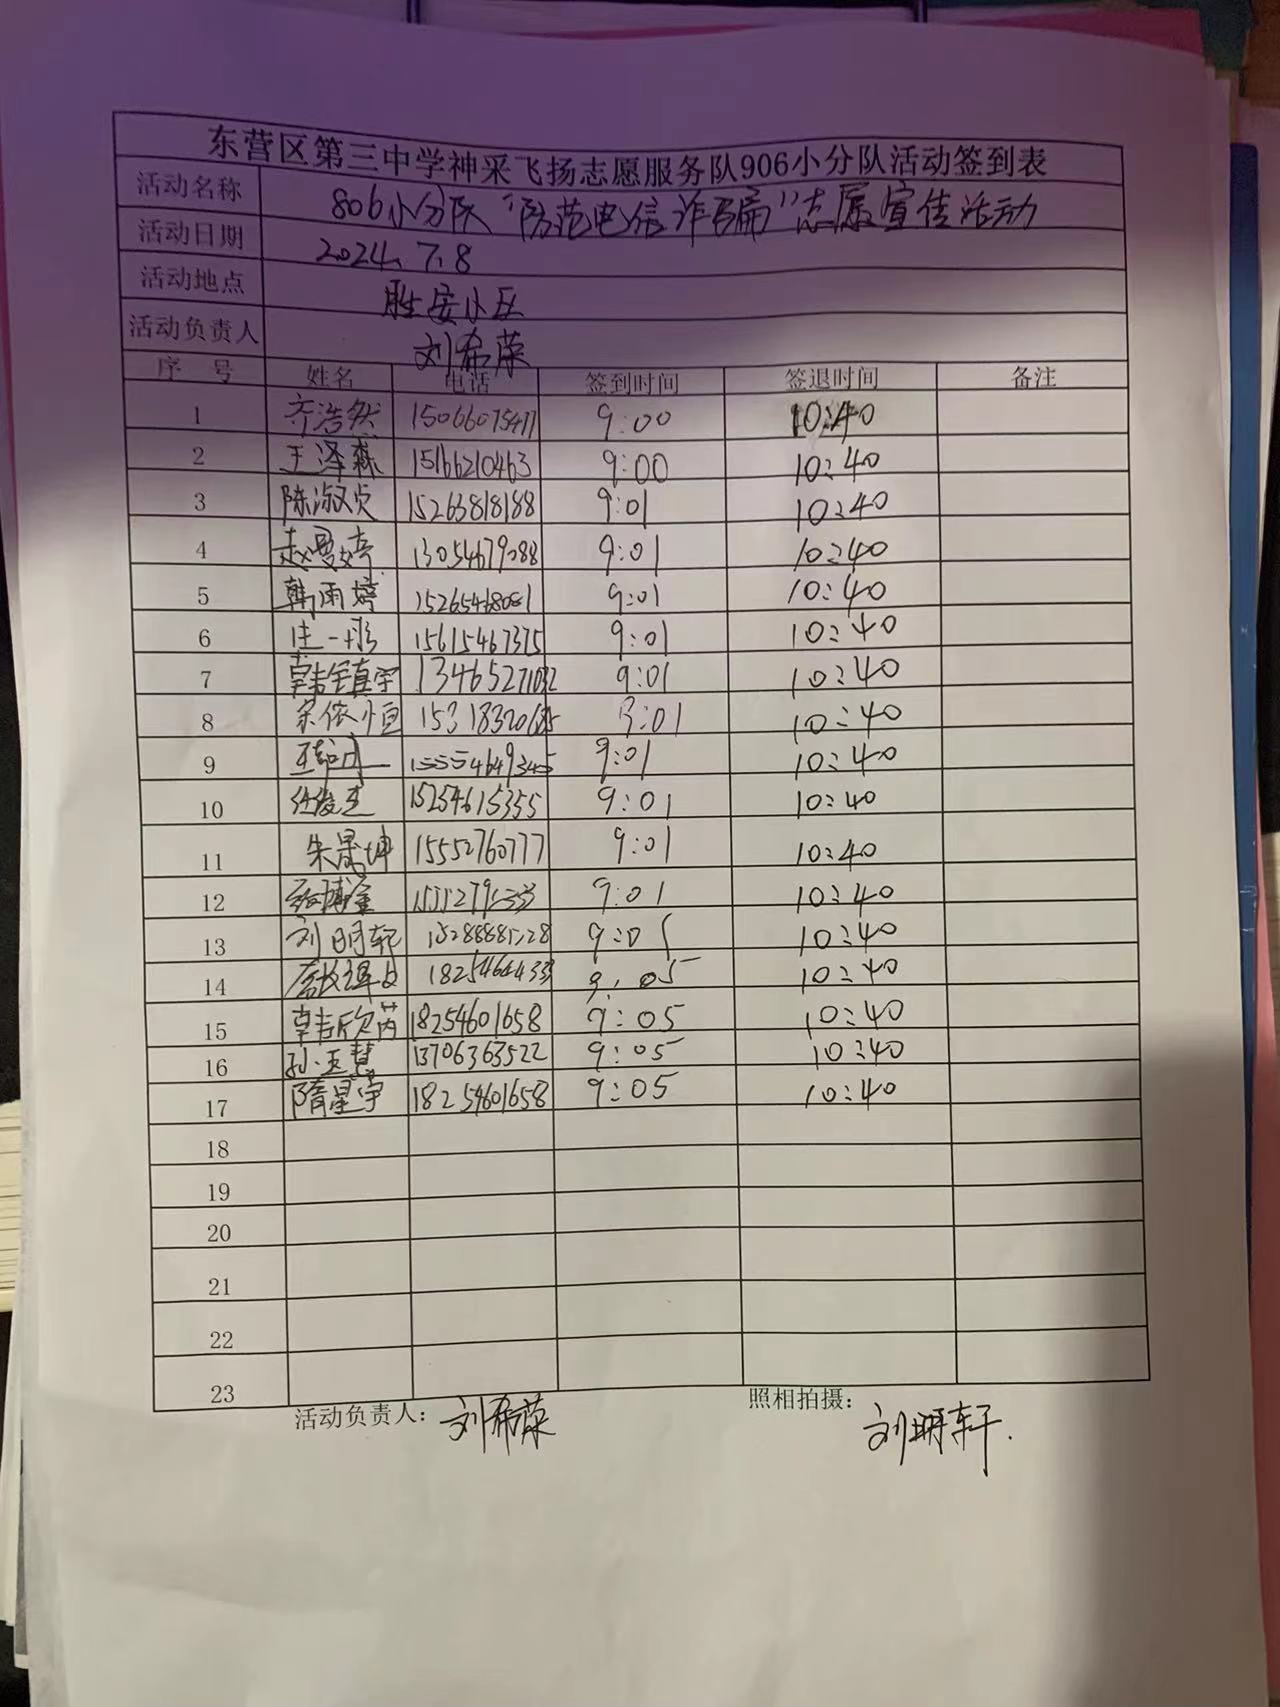 东营区第三中学神采飞扬志愿服务队906小分队活动签到表
活动名称 806小分队“防范电信诈骗”志愿宣传活动
活动日期 2024.7.8
活动地点 胜安小区
活动负责人 刘希荣
序 号 姓名 电话 签到时间 签退时间 备注
1 齐浩然 15066075411 9:00 10:40
2 王泽森 15166210463 9:00 10:40
3 陈淑贞 15263818188 9:01 10:40
4 赵曼婷 13054679088 9:01 10:40
5 韩雨婷 15265468081 9:01 10:40
6 庄一彤 15615467375 9:01 10:40
7 韩钰真宇 13465271032 9:01 10:40
8 宋依恒 15318320685 9:01 10:40
9 15554649345 9:01 10:40
10 15254615355 9:01 10:40
11 朱晟坤 15552760777 9:01 10:40
12 张博 9:01 10:40
13 刘明轩 9:05 10:40
14 9:05 10:40
15 韩欣芮 18254601658 9:05 10:40
16 孙玉慧 13706363522 9:05 10:40
17 隋星宇 18254601658 9:05 10:40
18
19
20
21
22
23
活动负责人：刘希荣 照相拍摄：刘明轩.